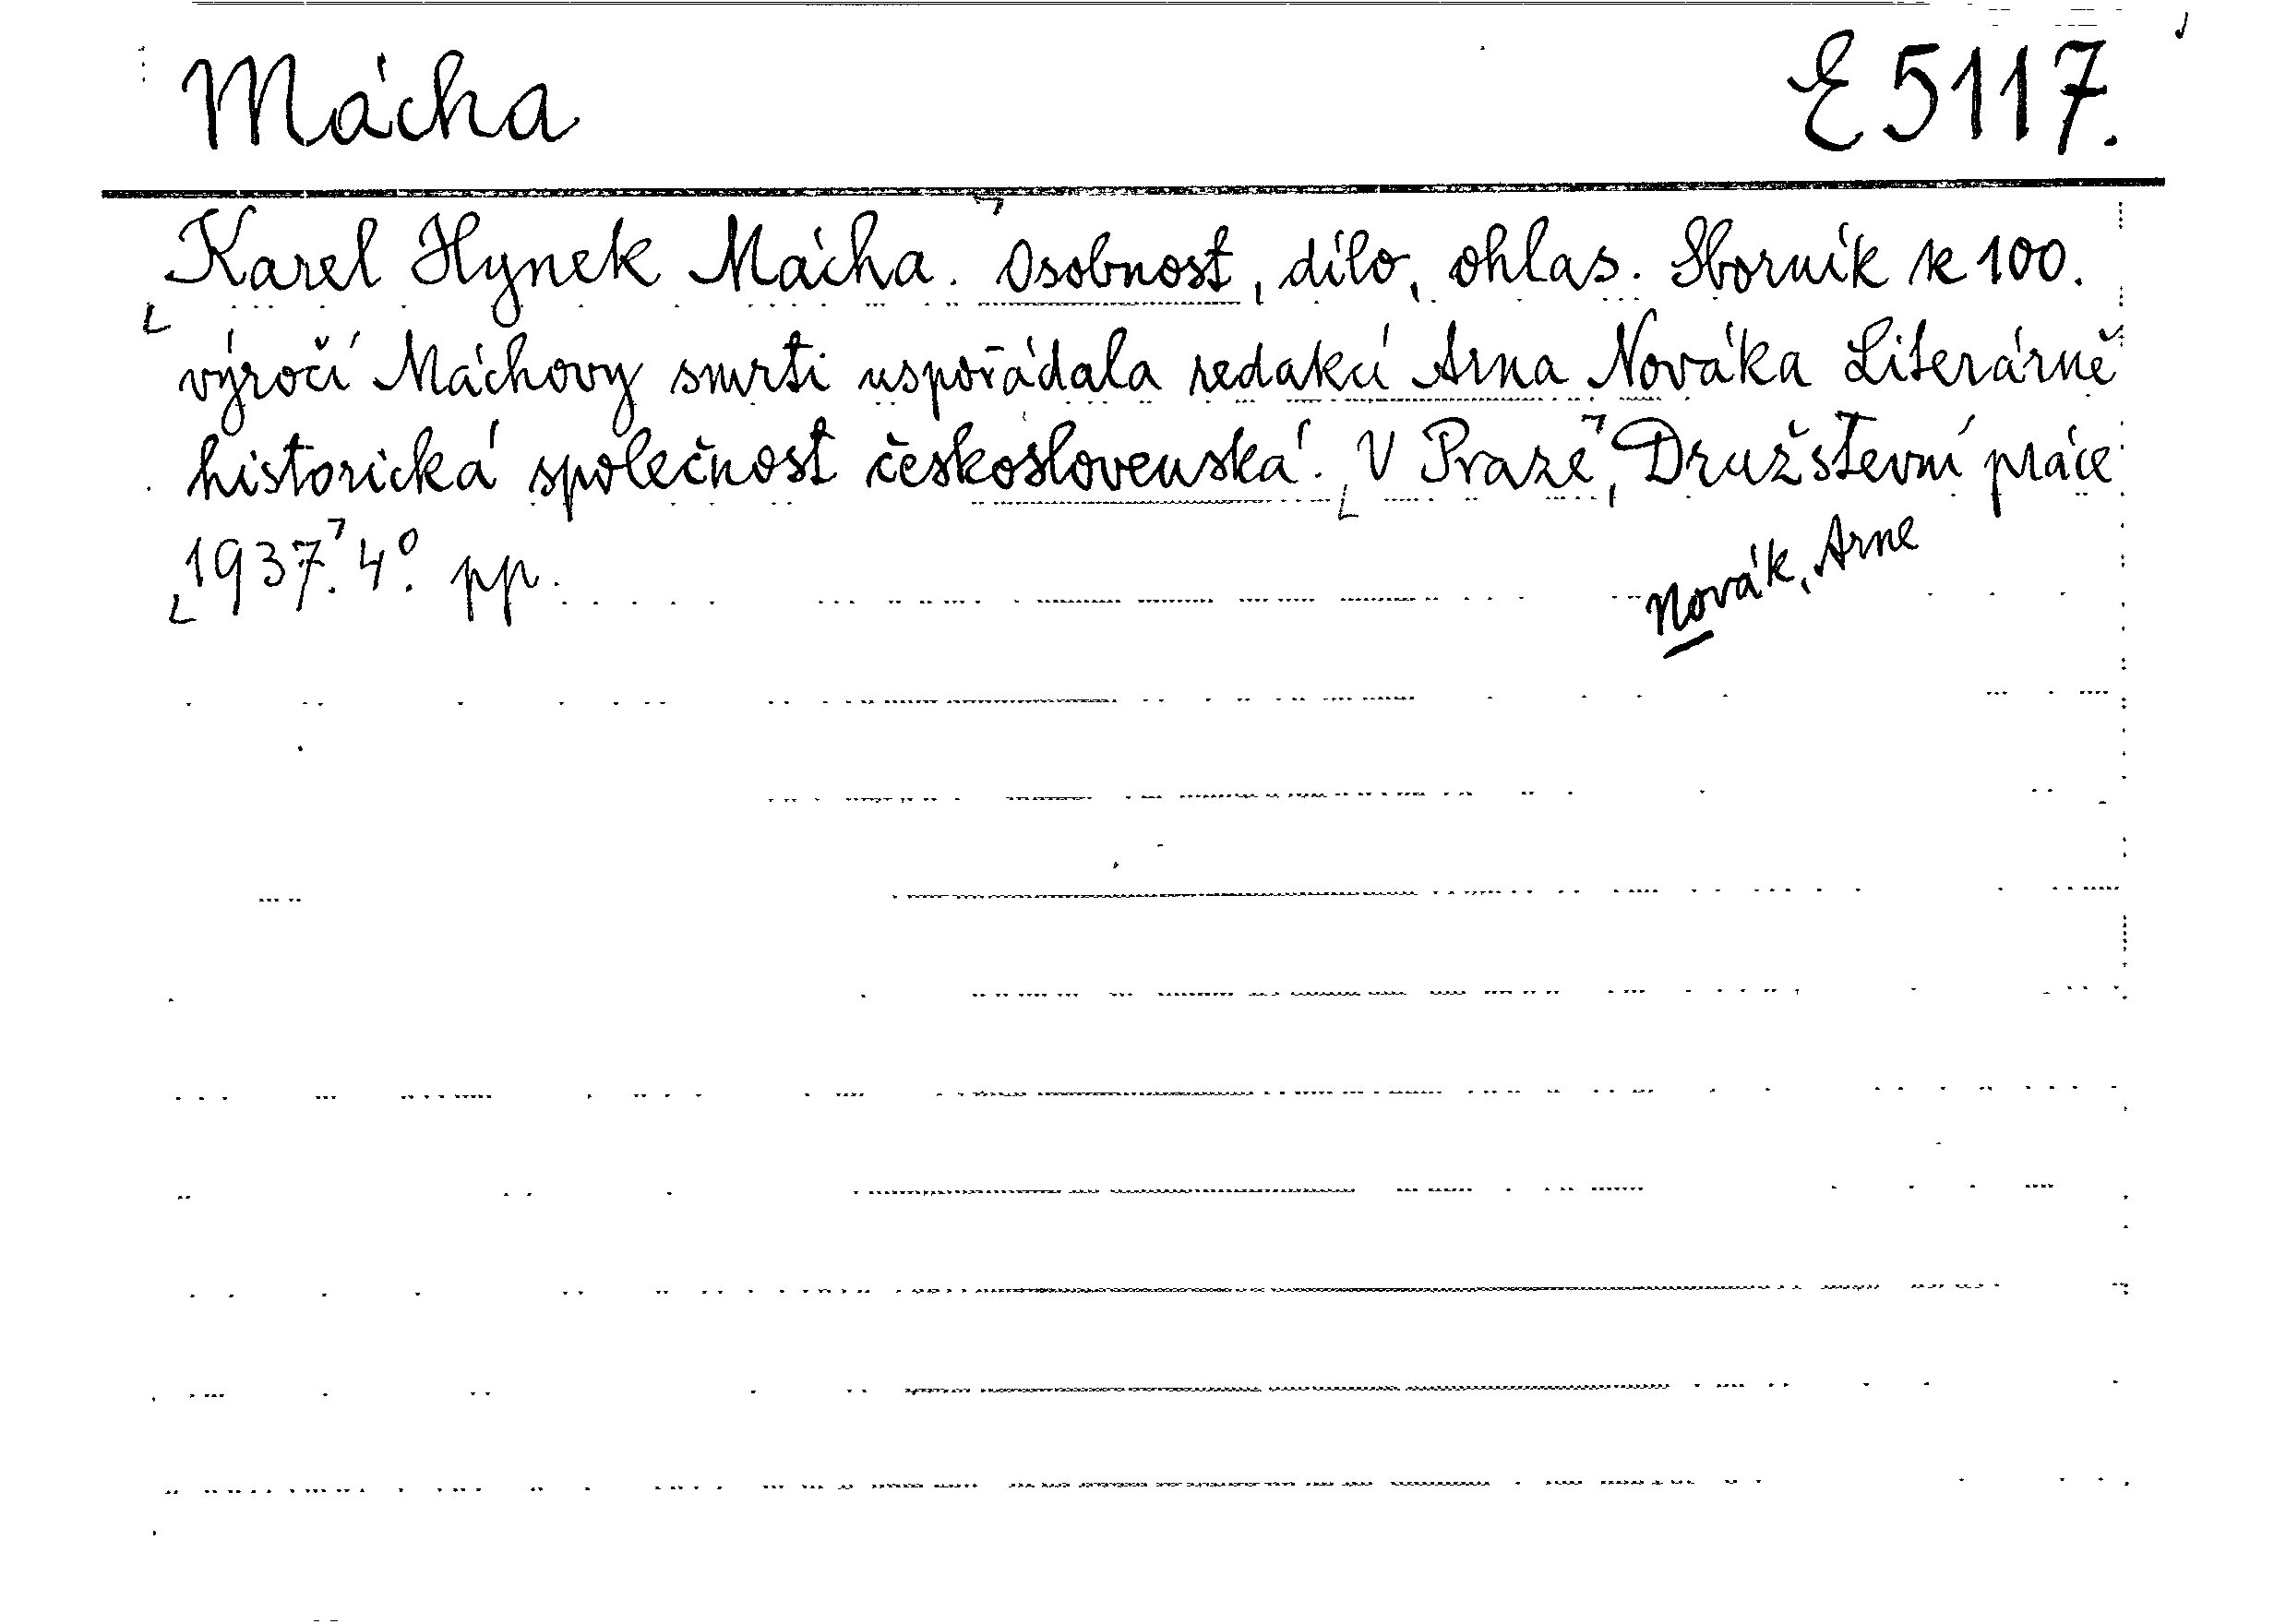 Mácha E 5117.
Karel Hynek Mácha. Osobnost, dílo, ohlas. Sborník k 100.
výročí Máchovy smrti uspořádala redakcí Arna Nováka Literárně
historická společnost československá. V Praze, Družstevní práce
1937. 4°. pp.
Novák, Arne